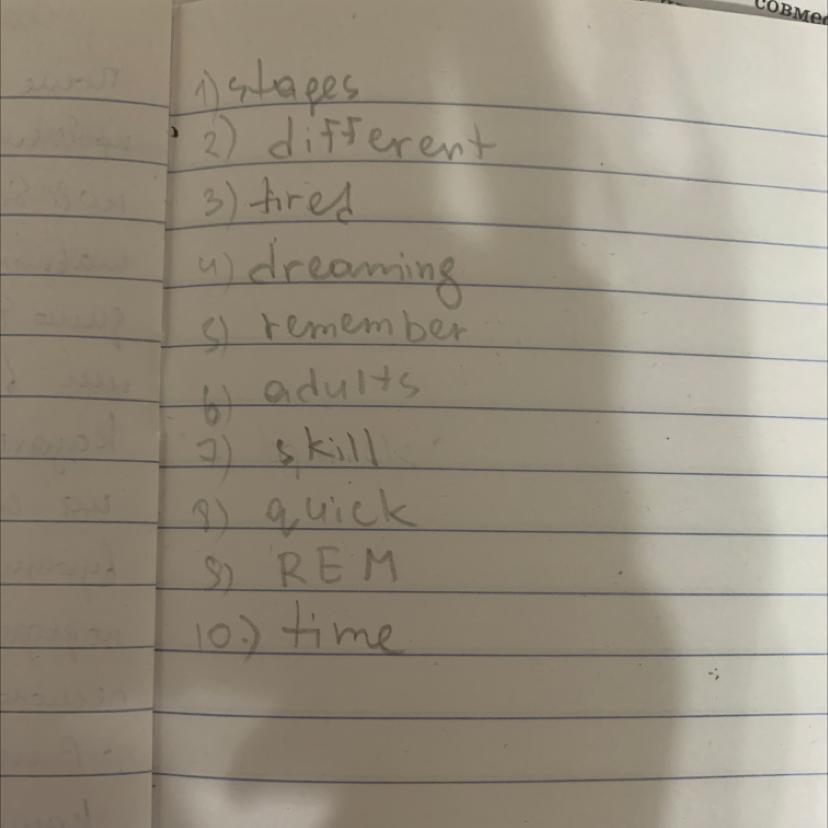 совмес
1) stages
2) different
3) tired
4) dreaming
5) remember
6) adults
7) skill
8) quick
9) REM
10.) time